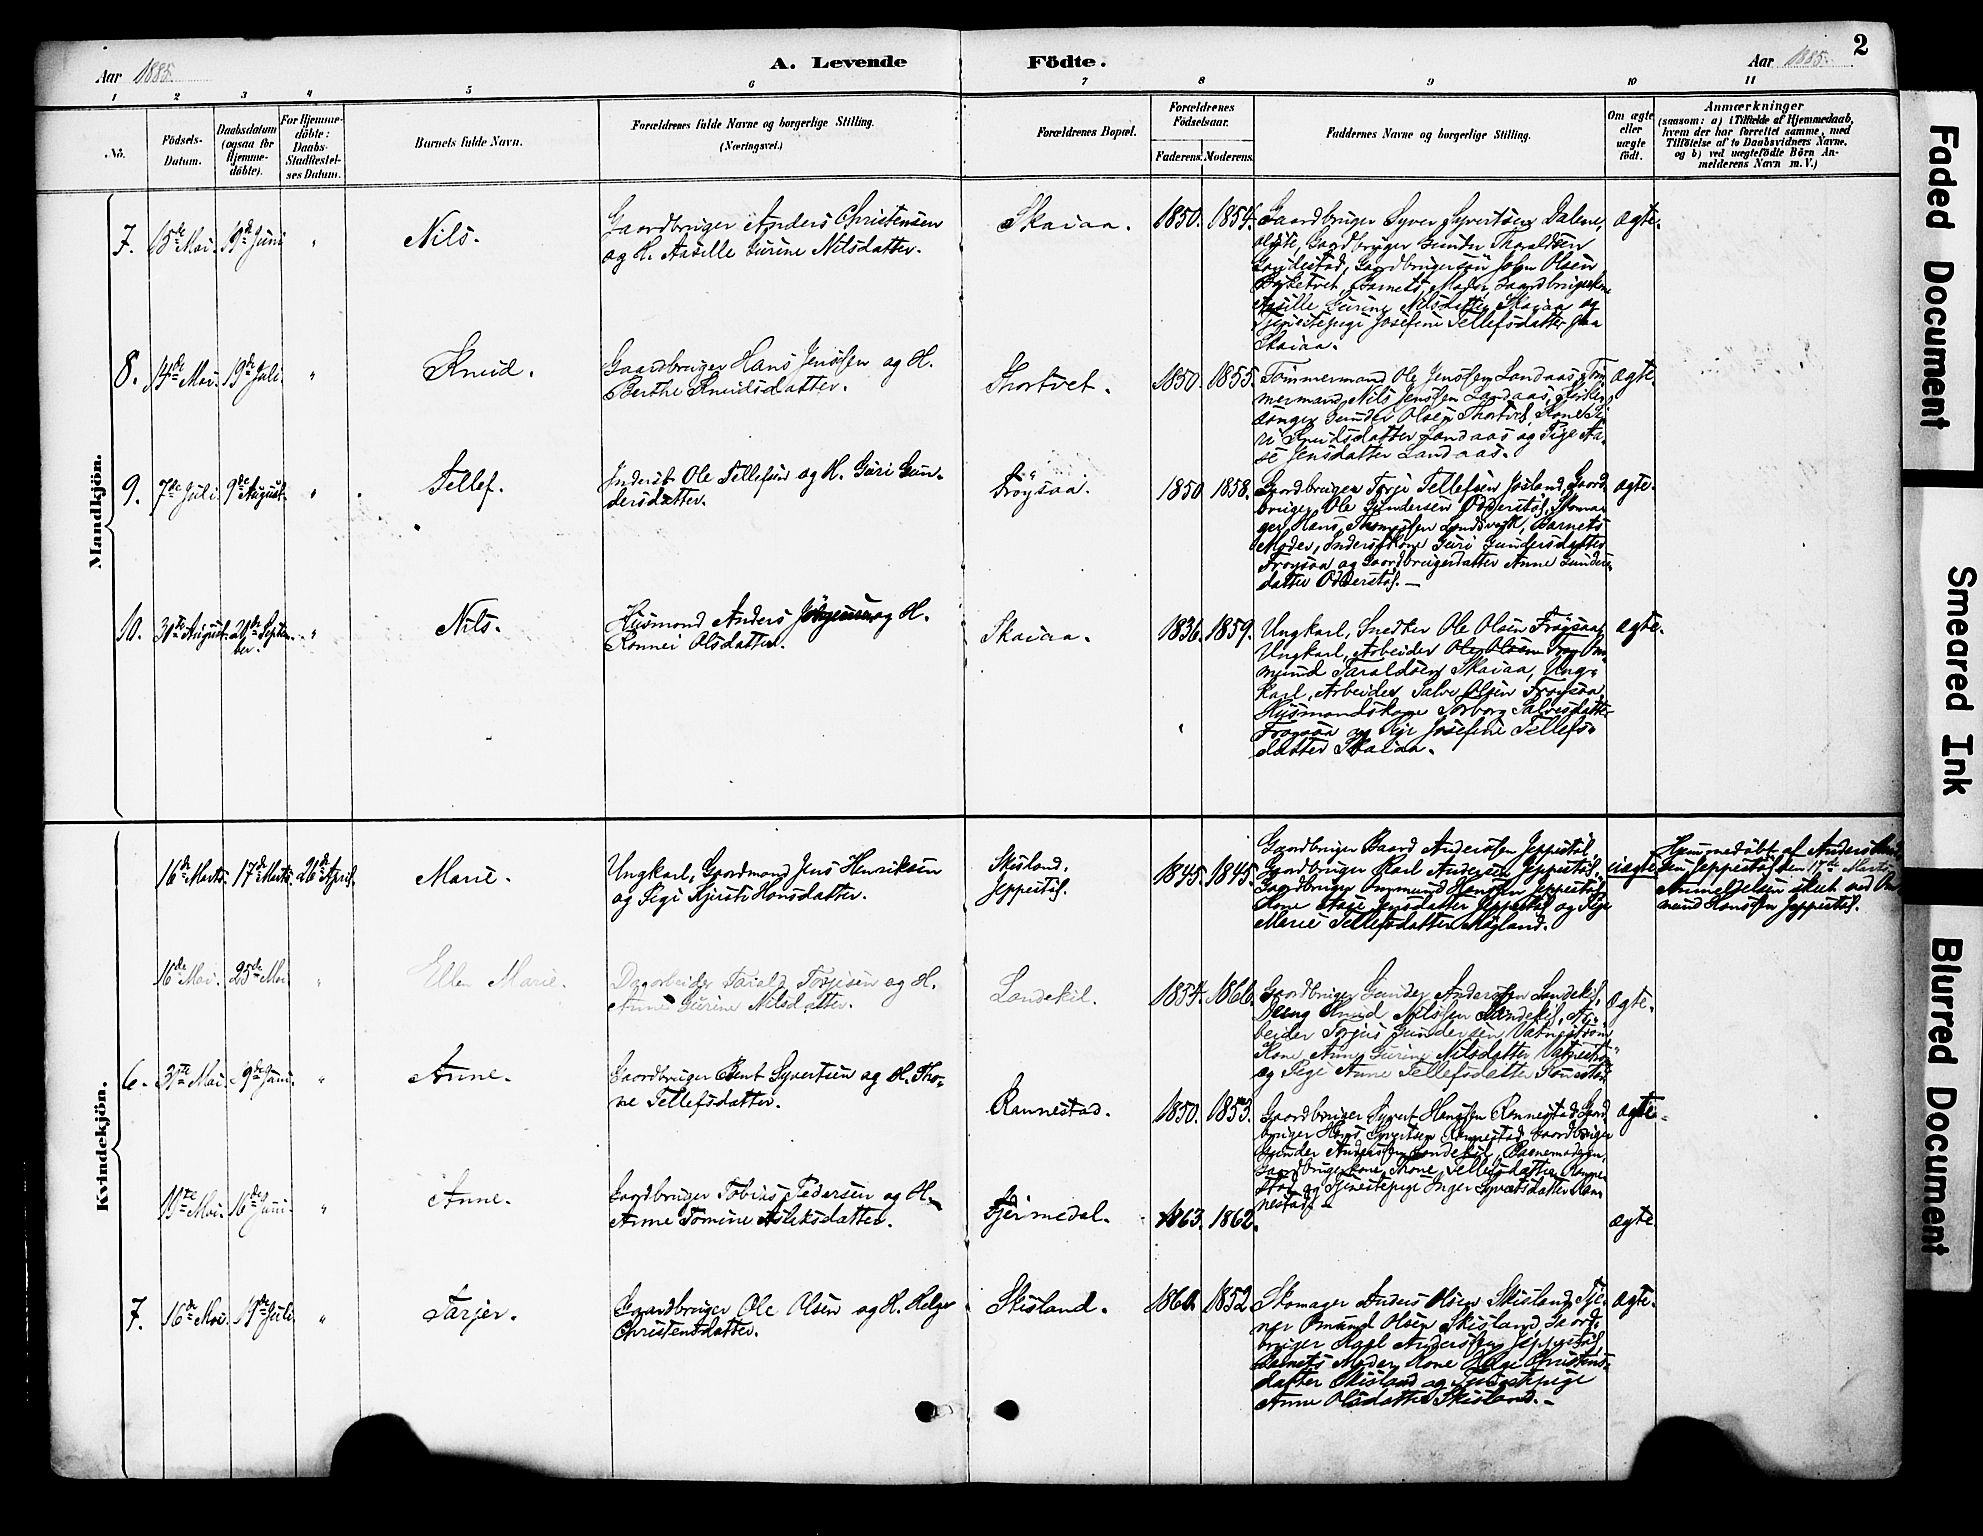 2
Aar 1885.
A. Levende Födte.
Aar 1885.
1 2 3 4 5 6 7 8 9 10 11
No.
Födsels-
Datum.
Daabsdatum
(ogsaa for
Hjemme-
döbte).
For Hjemme-
döbte:
Daabs-
Stadfæstel-
ses Datum.
Barnets fulde Navn.
Forældrenes fulde Navne og borgerlige Stilling.
(Næringsvei.)
Forældrenes Bopæl.
Forældrenes
Födselsaar.
Faderens. Moderens.
Faddernes Navne og borgerlige Stilling.
Om ægte
eller
uægte
født.
Anmærkninger
(saasom: a) i Tilfælde af Hjemmedaab,
hvem der har forrettet samme, med
Tilføielse af to Daabsvidners Navne.
og b) ved uægtefödte Börn An-
melderens Navn m. V.)
Mandkjön.
7. 15de Mai. 19de Juni " Nils.
Gaardbruger Anders Christensen
og H. Aasille Gurine Nilsdatter.
Skaiaa. 1850. 1854.
Gaardbruger Syver Syvertsen Dalene,
Gaardbruger Gunder Thoraldsen
Gaardbrugersøn John Olsen
Barnets Moder, Gaardbrugerkone
Aasille Gurine Nilsdatter Skaiaa og
Tjenestepige Josefine Tellefsdatter paa
Skaiaa.
ægte.
8. 14de Mai. 19de Juli. " Knud.
Gaardbruger Hans Jenssen og H.
Berthe Knudsdatter.
Thortvet. 1850. 1855.
Tømmermand Ole Jenssen Landaas, Tøm-
mermand Nils Jenssen Landaas, Kirke-
sanger Gunder Olsen Thortvet, Kone Gu-
ri Knudsdatter Landaas og Pige Aa-
se Jensdatter Landaas.
ægte.
9. 7de Juli 9de August. " Tellef.
Inderst Ole Tellefsen og H. Guri Gun-
dersdatter.
Frøysaa. 1850 1858.
Gaardbruger Torje Tellefsen Josland, Gaard-
bruger Ole Gundersen Odderstøl, Skoma-
ger Hans Thomassen Landsverk, Barnets
Moder, Inderstkone Guri Gundersdatter
Frøysaa og Gaardbrugerdatter Anne Gunders-
datter Odderstøl. —
ægte.
10. 31te August. 21de Septem-
ber. " Nils.
Husmand Anders Jörgensen og H.
Rønnei Olsdatter.
Skaiaa. 1836. 1859.
Ungkarl, Snedker Ole Olsen Frøysaa,
Ungkarl, Arbeider Om-
mund Taraldsen Skaiaa, Ung-
karl, Arbeider Salve Olsen Frøysaa,
Husmandskone Torborg Salvesdatter
Frøysaa og Pige Josefine Tellefs-
datter Skaiaa.
ægte.
Kvindekjön.
16de Marts 17de Marts. 26de April. Marie.
Ungkarl, Gaardmand Jens Henriksen
og Pige Kjersti Hansdatter.
Skisland,
Jeppestøl.
1845. 1845.
Gaardbruger Baard Anderssen Jeppestøl,
Gaardbruger Karl Andersen Jeppestøl,
Gaardbruger Ommund Hanssen Jeppestøl,
Kone Aase Jensdatter Jeppestøl og Pige
Marie Tellefsdatter Møgland.
uægte
Hjemmedöbt af Anders
Jeppestøl den 17de Marts.
Anmeldelsen skeet ved Om-
mund Hanssen Jeppestøl.
16de Mai. 25de Mai. " Ellen Marie.
Dagarbeider Tarald Torjesen og H.
Anne Gurine Nilsdatter.
Landekil. 1854. 1866.
Gaardbruger Gunder Anderssen Landekil,
Dreng Knud Nilssen Landekil, Ar-
beider Torjus Gundersen Vatnestrøm
Kone Anne Gurine Nilsdatter Vatnestrøm
og Pige Anne Tellefsdatter
ægte.
6. 3die Mai. 9de Juni " Anne.
Gaardbruger Bent Syvertsen og H. Tho-
ne Tellefsdatter.
Rannestad. 1850. 1853.
Gaardbruger Syvert Hanssen Rannestad, Gaard-
bruger Hans Syvertsen Rannestad, Gaardbruger
Gunder Anderssen Landekil, Barnemoderen,
Gaardbrugerkone Thone Tellefsdatter Ranne-
stad og Tjenestepige Inger Syvertsdatter Ran-
nestad. —
ægte.
19de Mai. 16de Juni. " Anne.
Gaardbruger Tobias Pedersen og H.
Anne Tomine Aslaksdatter.
Gjeimedal. 1863. 1862.
ægte
7. 16de Mai. 19de Juli. " Tarjer.
Gaardbruger Ole Olsen og H. Helge
Christensdatter.
Skisland. 1860. 1852
Skomager Anders Olsen Skisland, Tje-
ner Omund Olsen Skisland, Gaard-
bruger Karl Anderssen Jeppestøl,
Barnets Moder, Kone Helge Christens-
datter Skisland og Tjenestepige
Anne Olsdatter Skisland. —
ægte.
Faded Document
Smeared Ink
Blurred Document